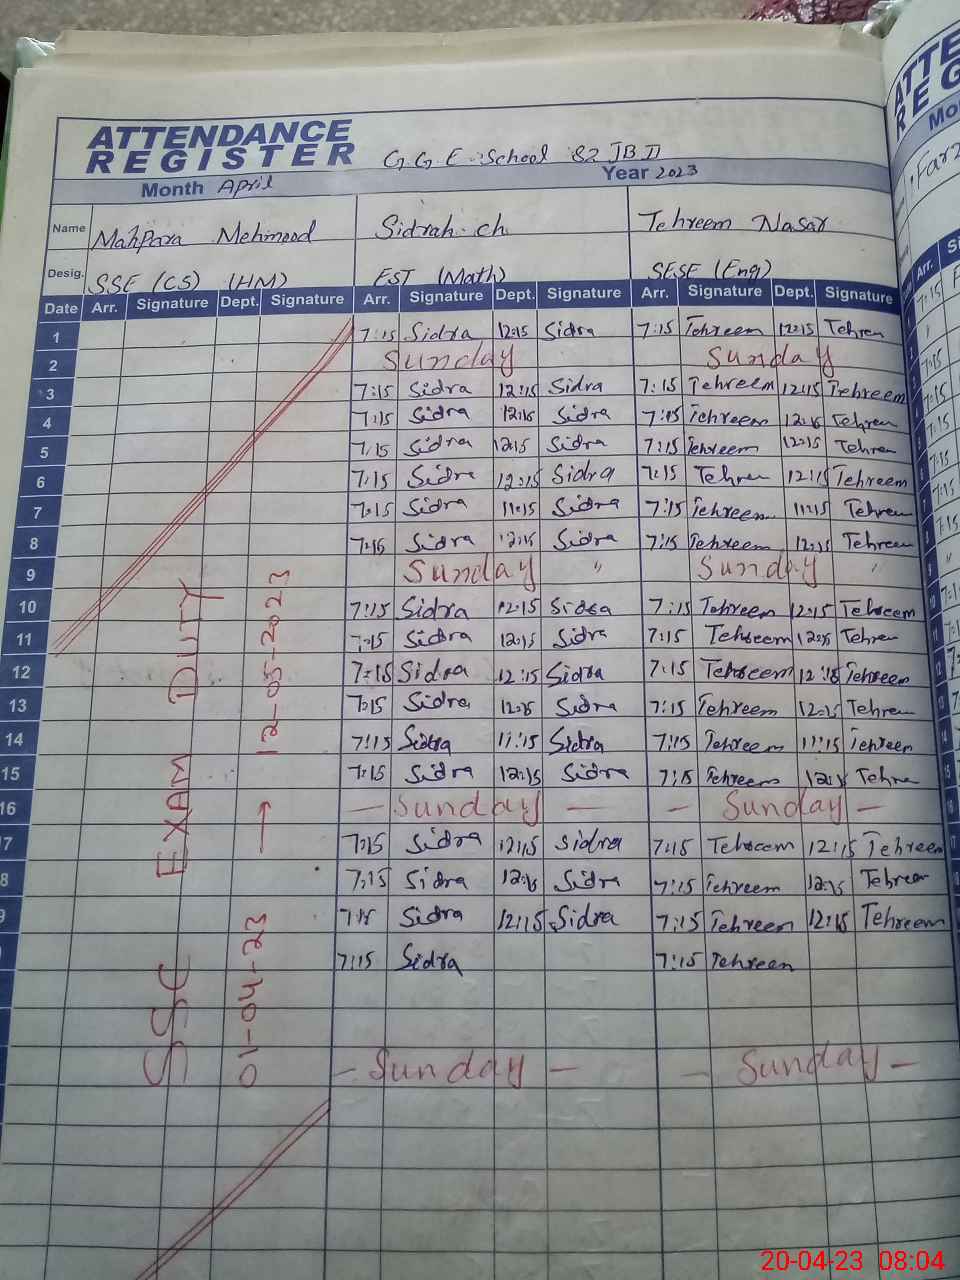 ATTENDANCE
REGISTER G.G.E.School 82 JB II
Month April Year 2023
Name Mahpara Mehmood Sidrah ch Tehreem Nasar
Desig. SSE (CS) (HM) EST (Math) SESE (Eng)
Date Arr. Signature Dept. Signature Arr. Signature Dept. Signature Arr. Signature Dept. Signature
1 7:15 Sidra 12:15 Sidra 7:15 Tehreem 12:15 Tehren
2 Sunday Sunday
3 7:15 Sidra 12:15 Sidra 7:15 Tehreem 12:15 Tehreem
4 7:15 Sidra 12:15 Sidra 7:15 Tehreem 12:15 Tehren
5 7:15 Sidra 12:15 Sidra 7:15 Tehreem 12:15 Tehren
6 7:15 Sidra 12:15 Sidra 7:15 Tehren 12:15 Tehreem
7 7:15 Sidra 11:15 Sidra 7:15 Tehreem 11:15 Tehreem
8 7:15 Sidra 12:15 Sidra 7:15 Tehreem 12:15 Tehreem
9 Sunday " Sunday "
10 7:15 Sidra 12:15 Sidra 7:15 Tehreem 12:15 Tehreem
11 7:15 Sidra 12:15 Sidra 7:15 Tehreem 12:15 Tehren
12 7:15 Sidra 12:15 Sidra 7:15 Tehreem 12:15 Tehreem
13 7:15 Sidra 12:15 Sidra 7:15 Tehreem 12:15 Tehreem
14 7:15 Sidra 11:15 Sidra 7:15 Tehreem 11:15 Tehreem
15 7:15 Sidra 12:15 Sidra 7:15 Tehreem 12:15 Tehren
16 - Sunday - - Sunday -
7 7:15 Sidra 12:15 Sidra 7:15 Tehreem 12:15 Tehreem
8 7:15 Sidra 12:15 Sidra 7:15 Tehreem 12:15 Tehreem
9 7:15 Sidra 12:15 Sidra 7:15 Tehreem 12:15 Tehreem
7:15 Sidra 7:15 Tehreem
- Sunday - - Sunday -
SSC EXAM DUTY
01-04-23 → 12-05-2023
20-04-23 08:04